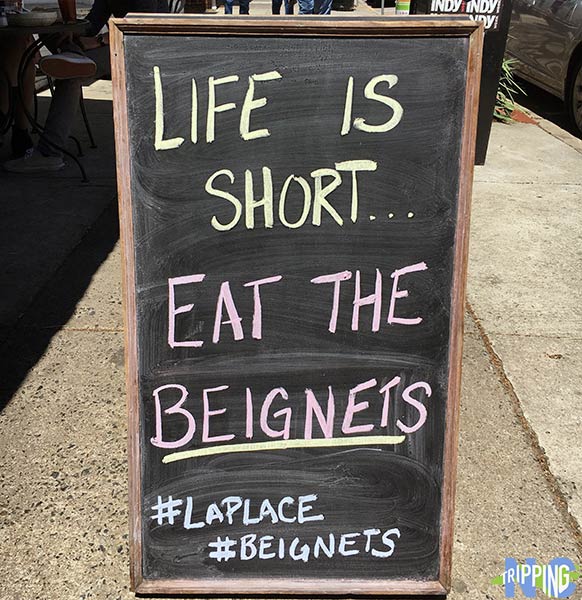 INDY INDY INDY
INDY
LIFE IS
SHORT...
EAT THE
BEIGNETS
#LAPLACE
#BEIGNETS
NC
TRIPPING